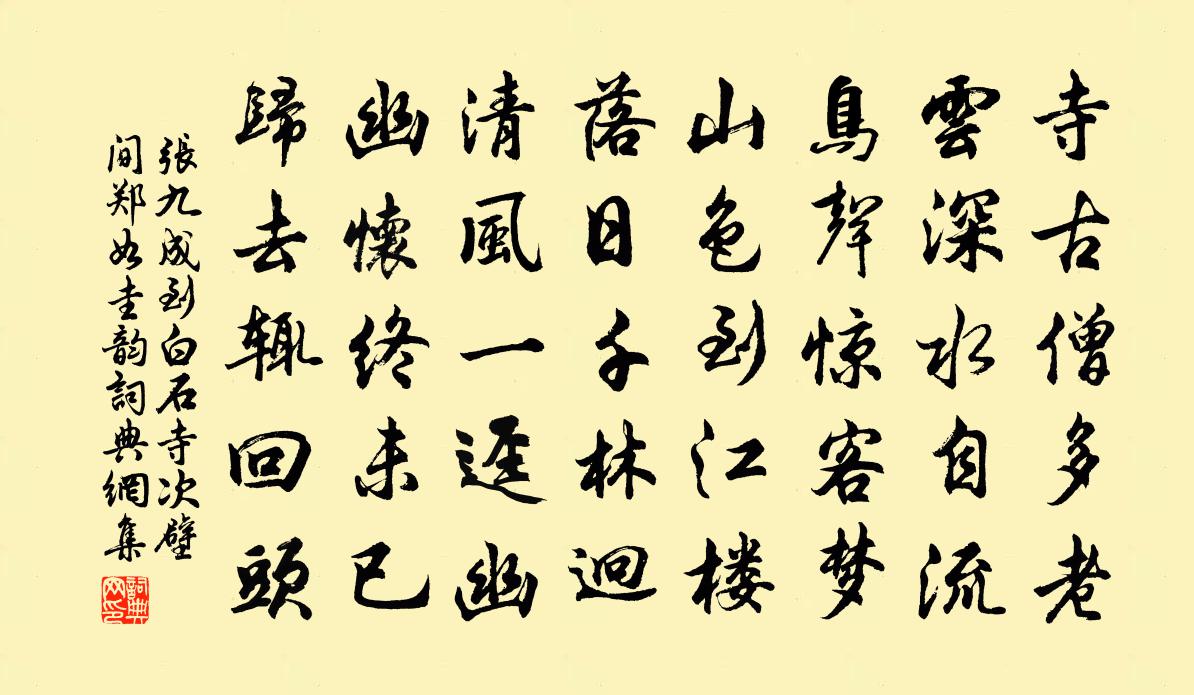 寺古僧多老
雲深水自流
鳥聲惊客梦
山色到江楼
落日千林迥
清風一逕幽
幽懷終未已
歸去輒回頭
張九成到白石寺次壁
间郑如圭韵詞典網集
詞典
网印